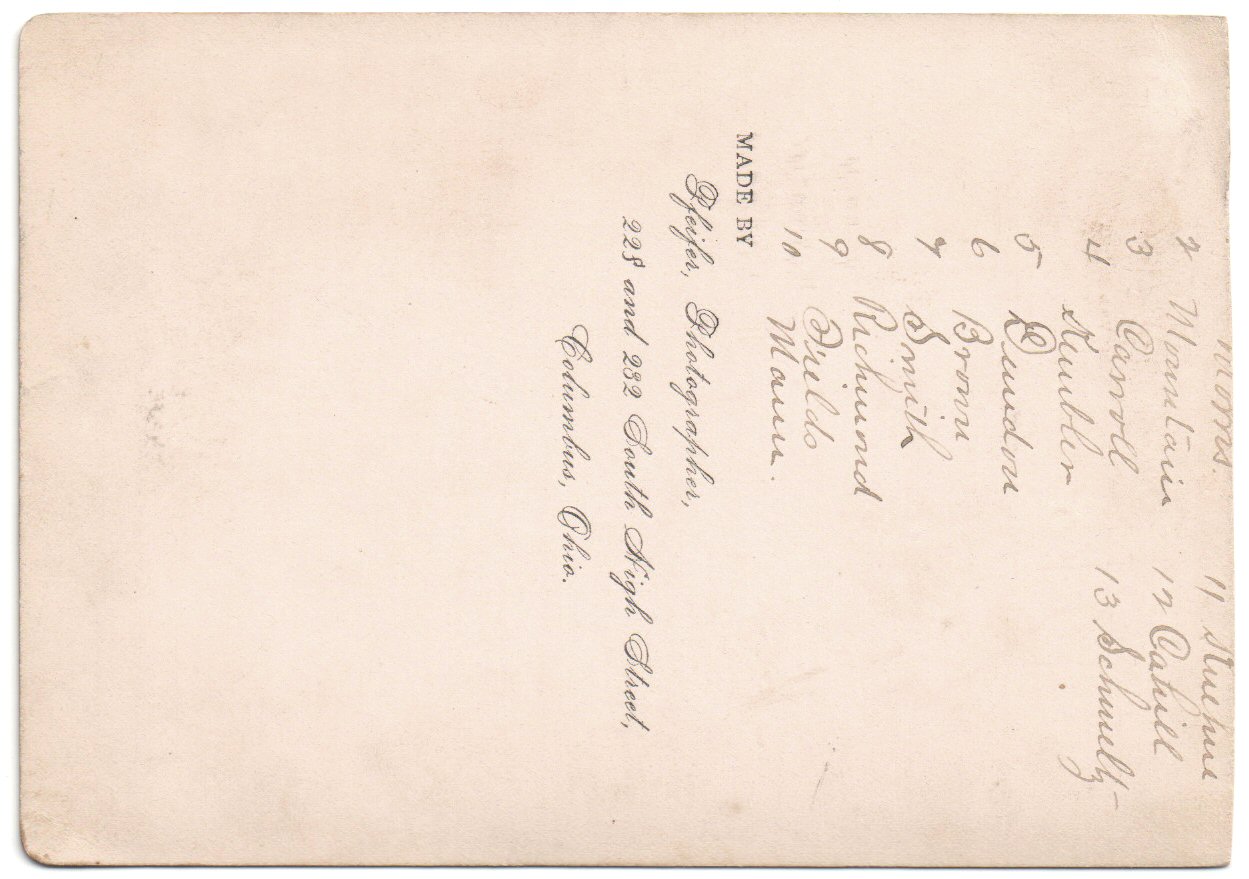 Morris.
2 Mountain
3 Carroll
4 Kembler
5 Dundon
6 Brown
7 Smith
8 Richmond
9 Fields
10 Mann.
11 Kuehne
12 Cahill
13 Schmeltz
MADE BY
Pfeifer, Photographer,
228 and 232 South High Street,
Columbus, Ohio.